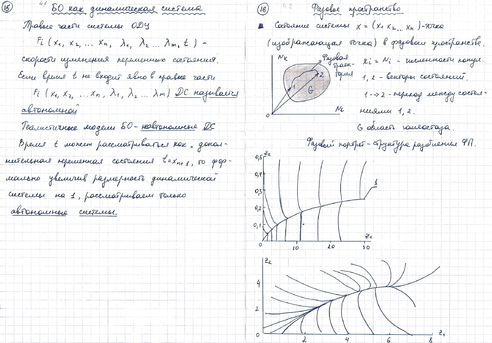 15
БО как динамическая система
Правые части системы ОДУ
Fi (x₁, x₂, ... xₙ, λ₁, λ₂ ... λₘ, t) -
скорости изменения переменных состояния.
Если время t не входит явно в правые части
Fi (x₁, x₂, ... xₙ, λ₁, λ₂ ... λₘ) ДС называется
автономной
Реалистичные модели БО - неавтономные ДС
Время t может рассматриваться как допол-
нительная переменная состояния t = xₙ₊₁, то фор-
мально увеличив размерность динамической
системы на 1, рассматриваем только
автономные системы.
16
Фазовое пространство
Состояние системы x = (x₁, x₂, ... xₙ) - точка
(изображающая точка) в фазовом пространстве.
Nк
Фазовая
траек-
тория
1
2
G
Ni
xi = Ni - численности конкр.
1, 2 - векторы состояний.
1 → 2 - переход между состоя-
ниями 1, 2.
G область гомеостаза.
Фазовый портрет - структура разбиения ФП.
0,5
0,4
0,3
0,2
0,1
0
10
20
30
z₁
z₂
6
4
2
0
2
4
6
8
z₁